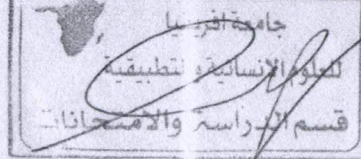 جامعة افريقيا
للعلوم الإنسانية و التطبيقية
قسم الدراسة والامتحانات